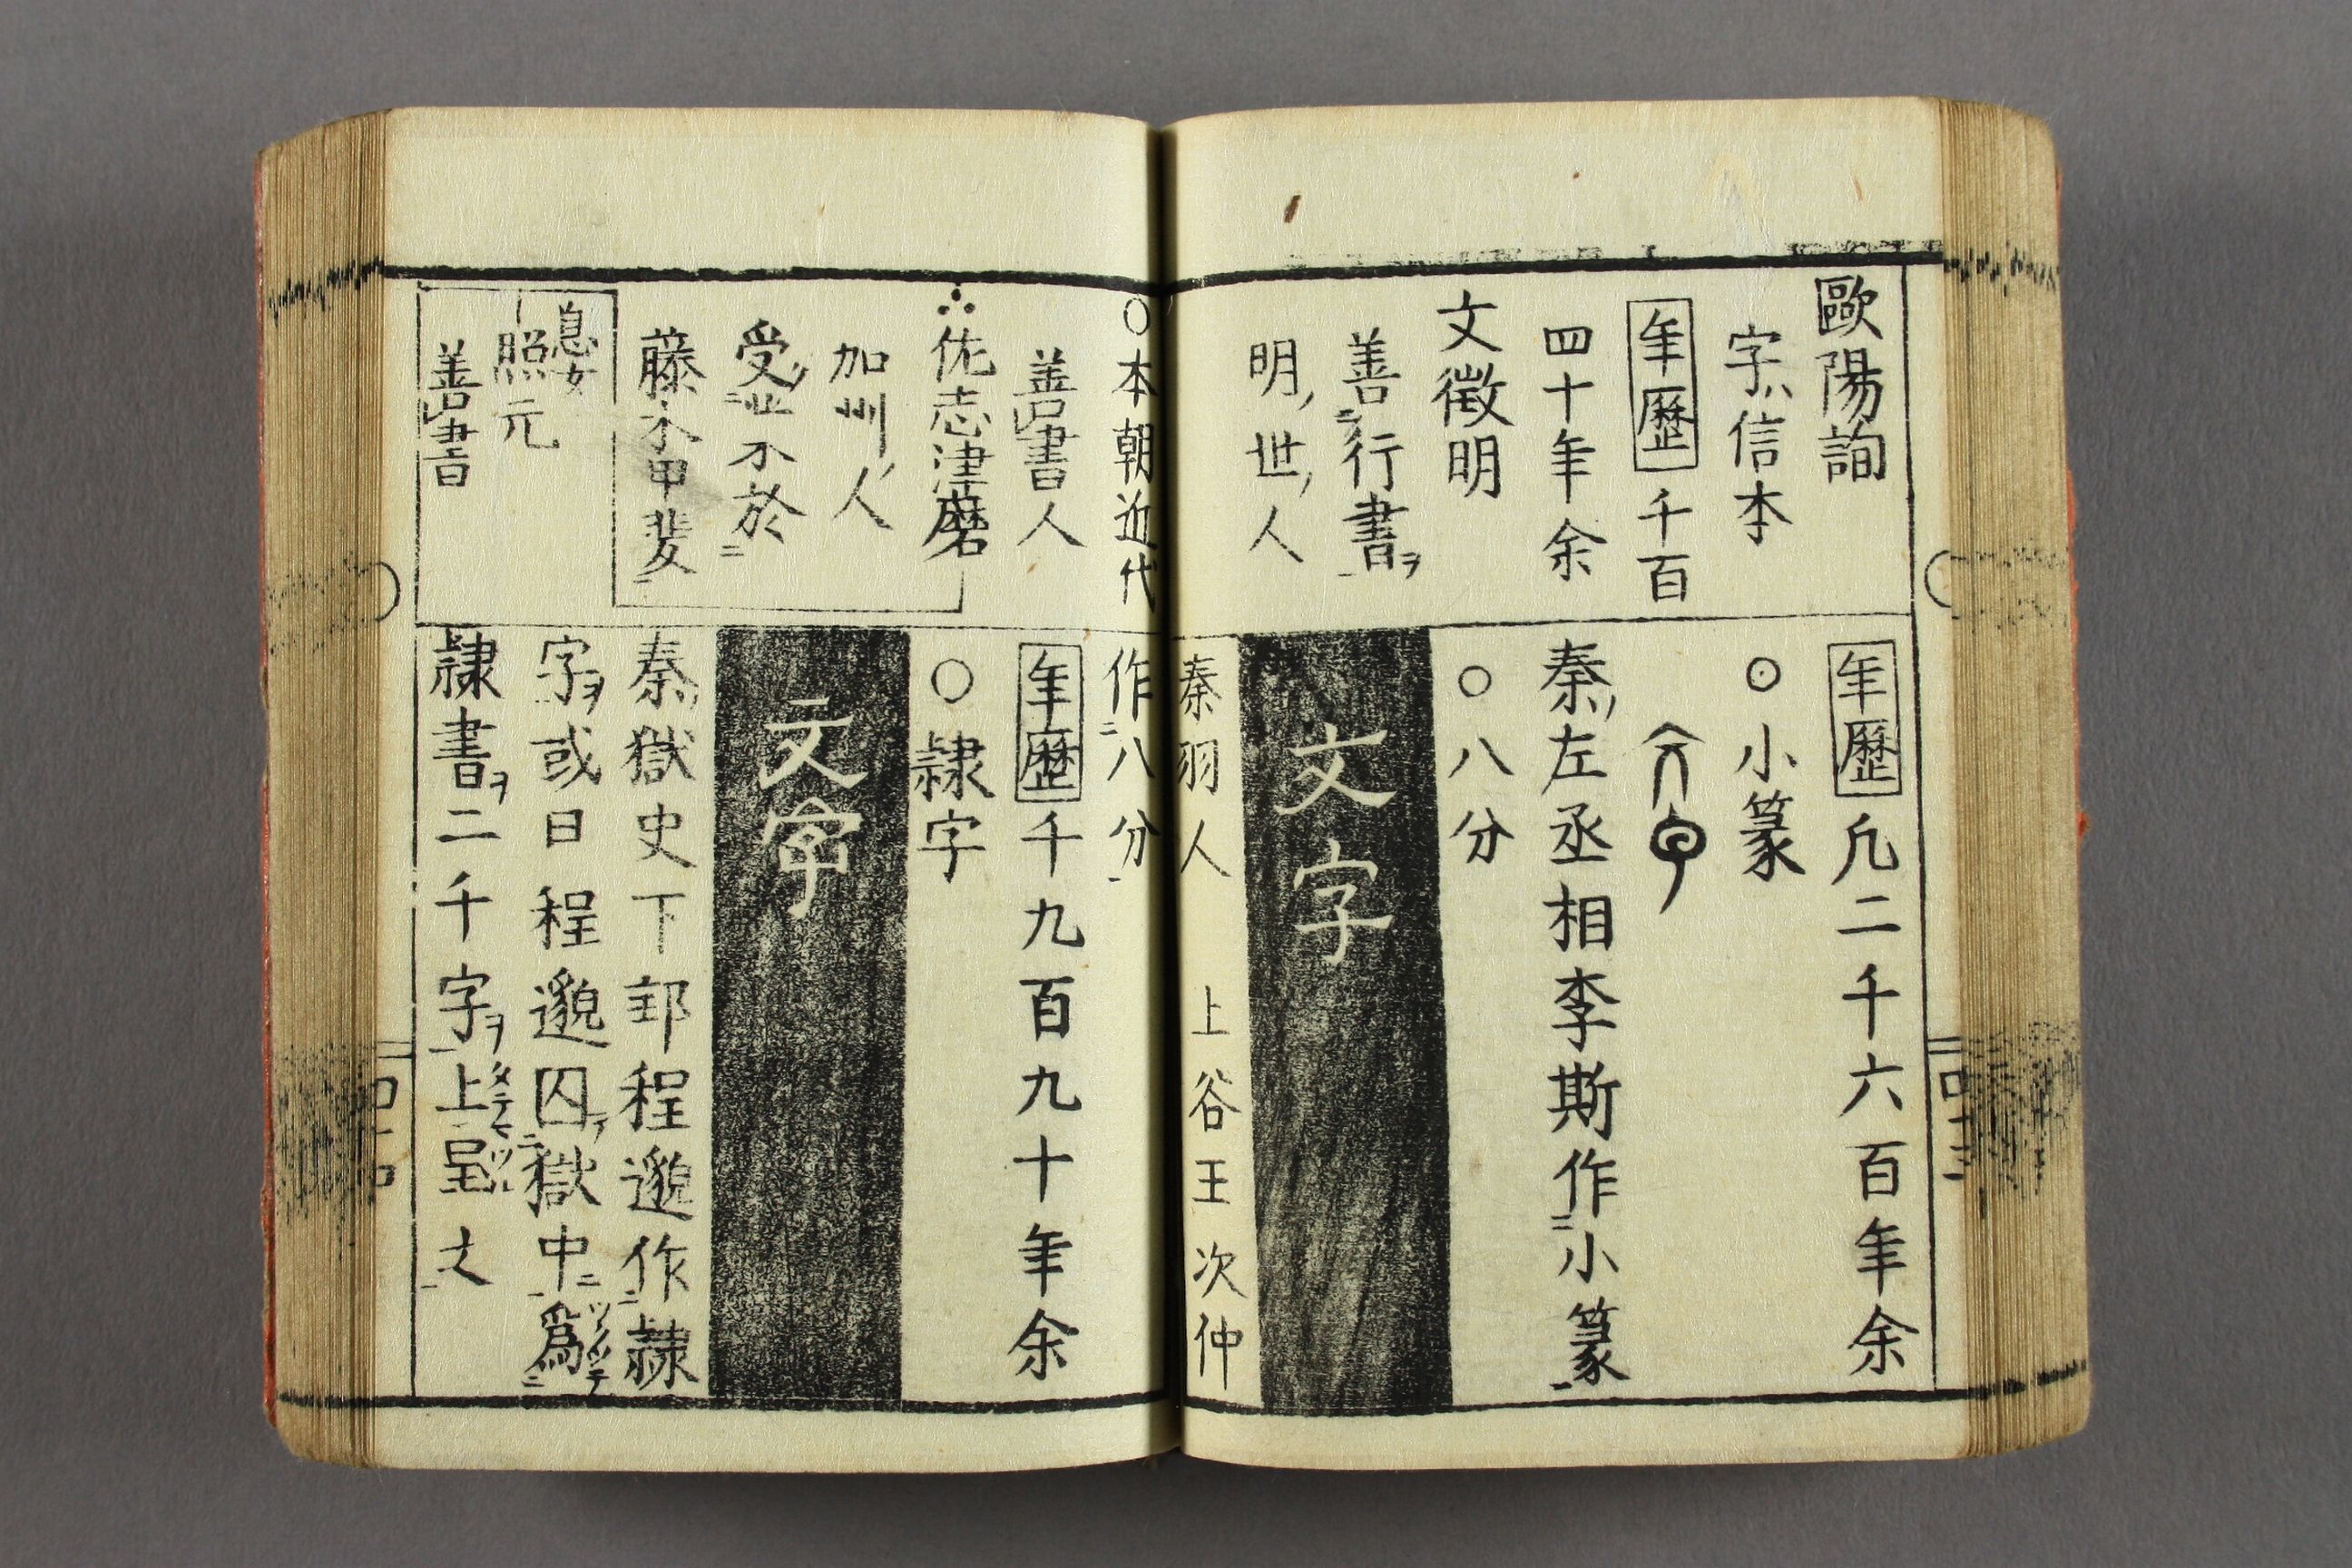 歐陽詢
字ハ信本
年歷千百
四十年余
文徴明
善二行書ヲ一
明ノ世ノ人
年歷凢二千六百年余
〇小篆
文字
秦ノ左丞相李斯作二小篆一
〇八分
文字
秦羽人 上谷王次仲
〇本朝近代
善書人
佐志津磨
加州ノ人
受二業於
藤木甲斐一
息女
照元
善書
作二八分一
年歷千九百九十年余
〇隷字
文字
秦ノ獄史下邽程邈作二隷
字ヲ一或曰程邈囚獄中ニ爲
隷書ヲ二千字ヲ上呈